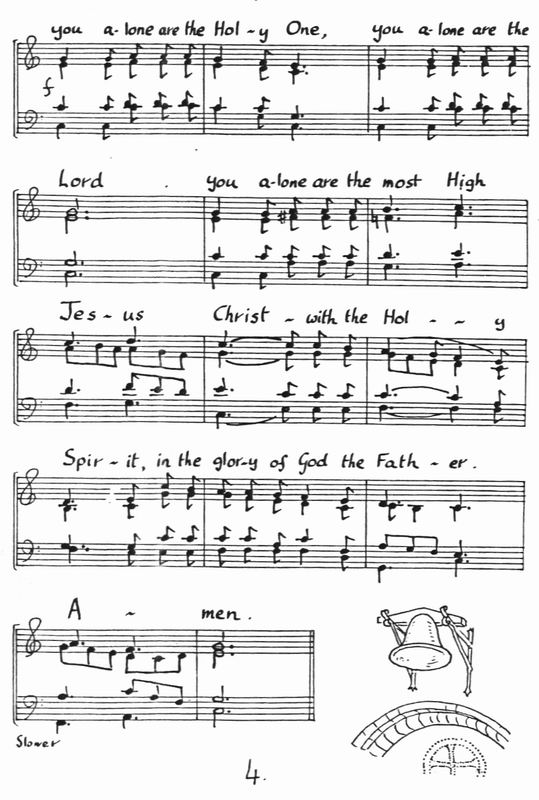 you a-lone are the Hol-y One, you a-lone are the
f
Lord . you a-lone are the most High
Jes-us Christ - with the Hol - - y
Spir-it, in the glor-y of God the Fath-er.
A - men.
Slower
4.